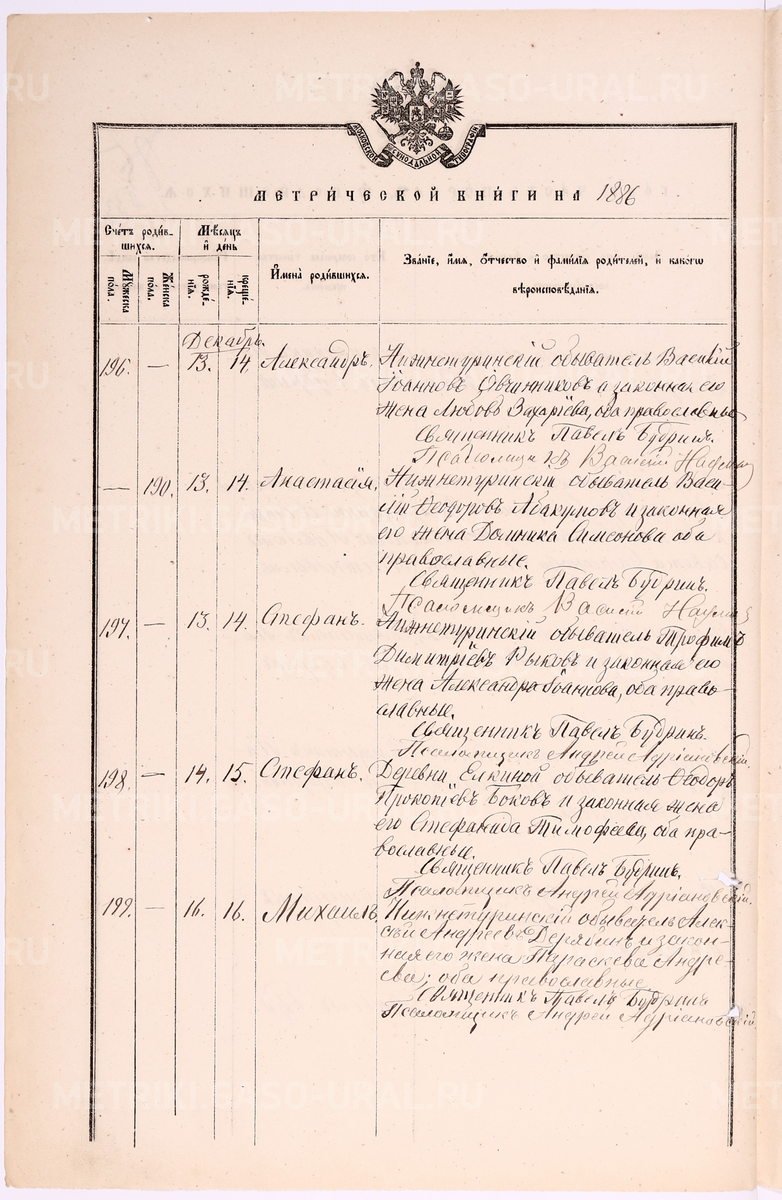 МОСКОВСКОЙ СѴНОДАЛЬНОЙ ТИПОГРАФІИ
МЕТРИЧЕСКОЙ КНИГИ НА 1886
Счетъ родив-
шихся.
Мужеска
пола.
Женска
пола.
Мѣсяцъ
и день
рожде-
нія.
креще-
нія.
Имена родившихся.
Званіе, имя, отчество и фамилія родителей, и какого
вѣроисповѣданія.
Декабрь.
196. — 13. 14. Александръ. Нижнетуринскій обыватель Василій
Іоанновъ Овчинниковъ и законная его
жена Любовь Захаріева, оба православные
Священникъ Павелъ Будринъ.
Василій Наумов
— 190. 13. 14. Анастасія. Нижнетуринскій обыватель Васи-
лій Ѳеодоровъ Абакумовъ и законная
его жена Домника Симеонова оба
православные.
Священникъ Павелъ Будринъ.
Псаломщикъ Василій Наумов
197. — 13. 14. Стефанъ. Нижнетуринскій обыватель Трофимъ
Димитріевъ Рыковъ и законная его
жена Александра Іоаннова, оба право-
славные.
Священникъ Павелъ Будринъ.
Псаломщикъ Андрей Адріановскій.
198. — 14. 15. Стефанъ. Деревни Елкиной обыватель Ѳеодоръ
Прокопіевъ Боковъ и законная жена
его Стефанида Тимофеева, оба пра-
вославные.
Священникъ Павелъ Будринъ.
Псаломщикъ Андрей Адріановскій.
199. — 16. 16. Михаилъ Нижнетуринскій обыватель Алек-
сѣй Андреевъ Дерябинъ и закон-
ная его жена Параскева Андре-
ева; оба православные
Священникъ Павелъ Будринъ
Псаломщикъ Андрей Адріановскій.
METRIKI.RASO-URAL.RU